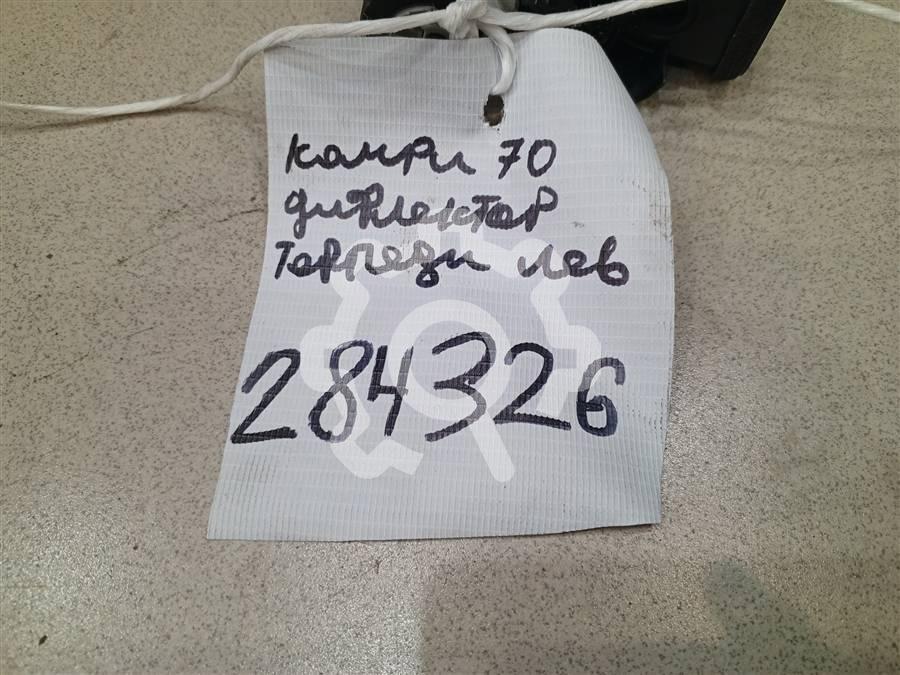 камри 70
дифлектор
торпеды лев
284326